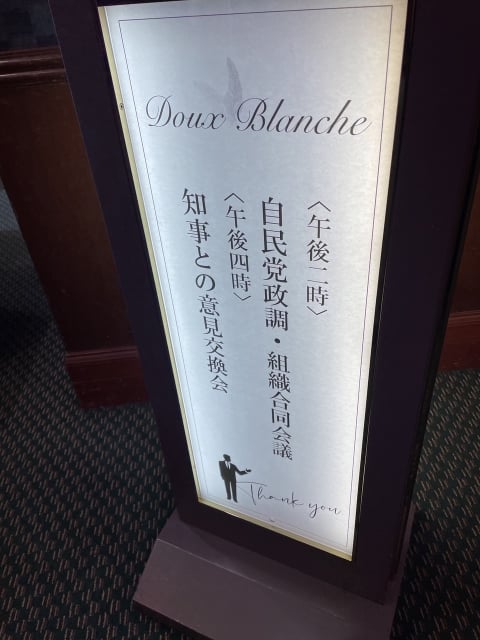 Doux Blanche
〈午後二時〉
自民党政調・組織合同会議
〈午後四時〉
知事との意見交換会
Thank you